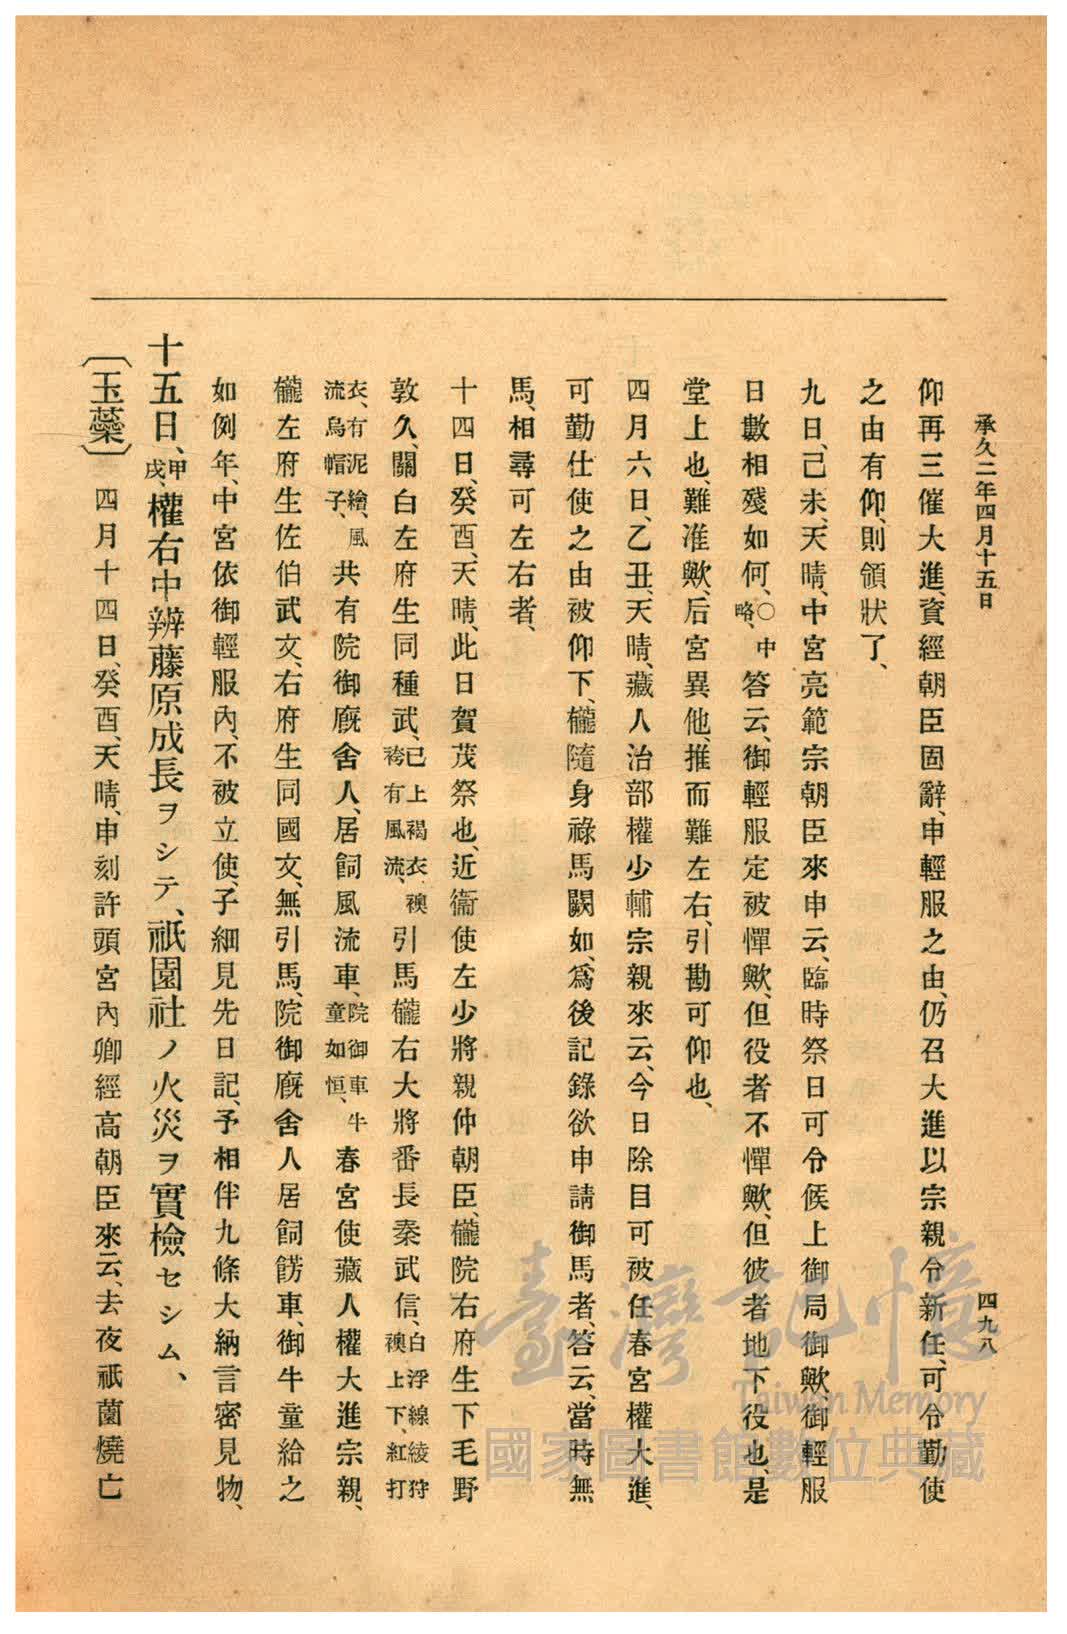 承久二年四月十五日
四九八
仰再三催大進、資經朝臣固辭、申輕服之由、仍召大進以宗親令新任、可令勤使
之由有仰、則領狀了、
九日、己未、天晴、中宮亮範宗朝臣來申云、臨時祭日可令候上御局御歟、御輕服
日數相殘如何、〇中略、答云、御輕服定被憚歟、但役者不憚歟、但彼者地下役也、是
堂上也、難准歟、后宮異他、推而難左右、引勘可仰也、
四月六日、乙丑、天晴、藏人治部權少輔宗親來云、今日除目可被任春宮權大進、
可勤仕使之由被仰下、櫳隨身祿馬闕如、爲後記錄欲申請御馬者、答云、當時無
馬、相尋可左右者、
十四日、癸酉、天晴、此日賀茂祭也、近衞使左少將親仲朝臣、櫳院右府生下毛野
敦久、關白左府生同種武、已上褐衣、襖袴有風流、引馬櫳右大將番長秦武信、白浮線綾狩襖上下、紅打
衣、有泥繪、風流烏帽子、共有院御廐舍人、居飼風流車、院御車牛童如恒、春宮使藏人權大進宗親、
櫳左府生佐伯武文、右府生同國文、無引馬、院御廐舍人居飼餝車、御牛童給之
如例年、中宮依御輕服內、不被立使、子細見先日記、予相伴九條大納言密見物、
十五日、甲戌、權右中辨藤原成長ヲシテ、祇園社ノ火災ヲ實檢セシム、
〔玉蘂〕四月十四日、癸酉、天晴、申刻許頭宮內卿經高朝臣來云、去夜祇薗燒亡
臺灣記憶
Taiwan Memory
國家圖書館數位典藏